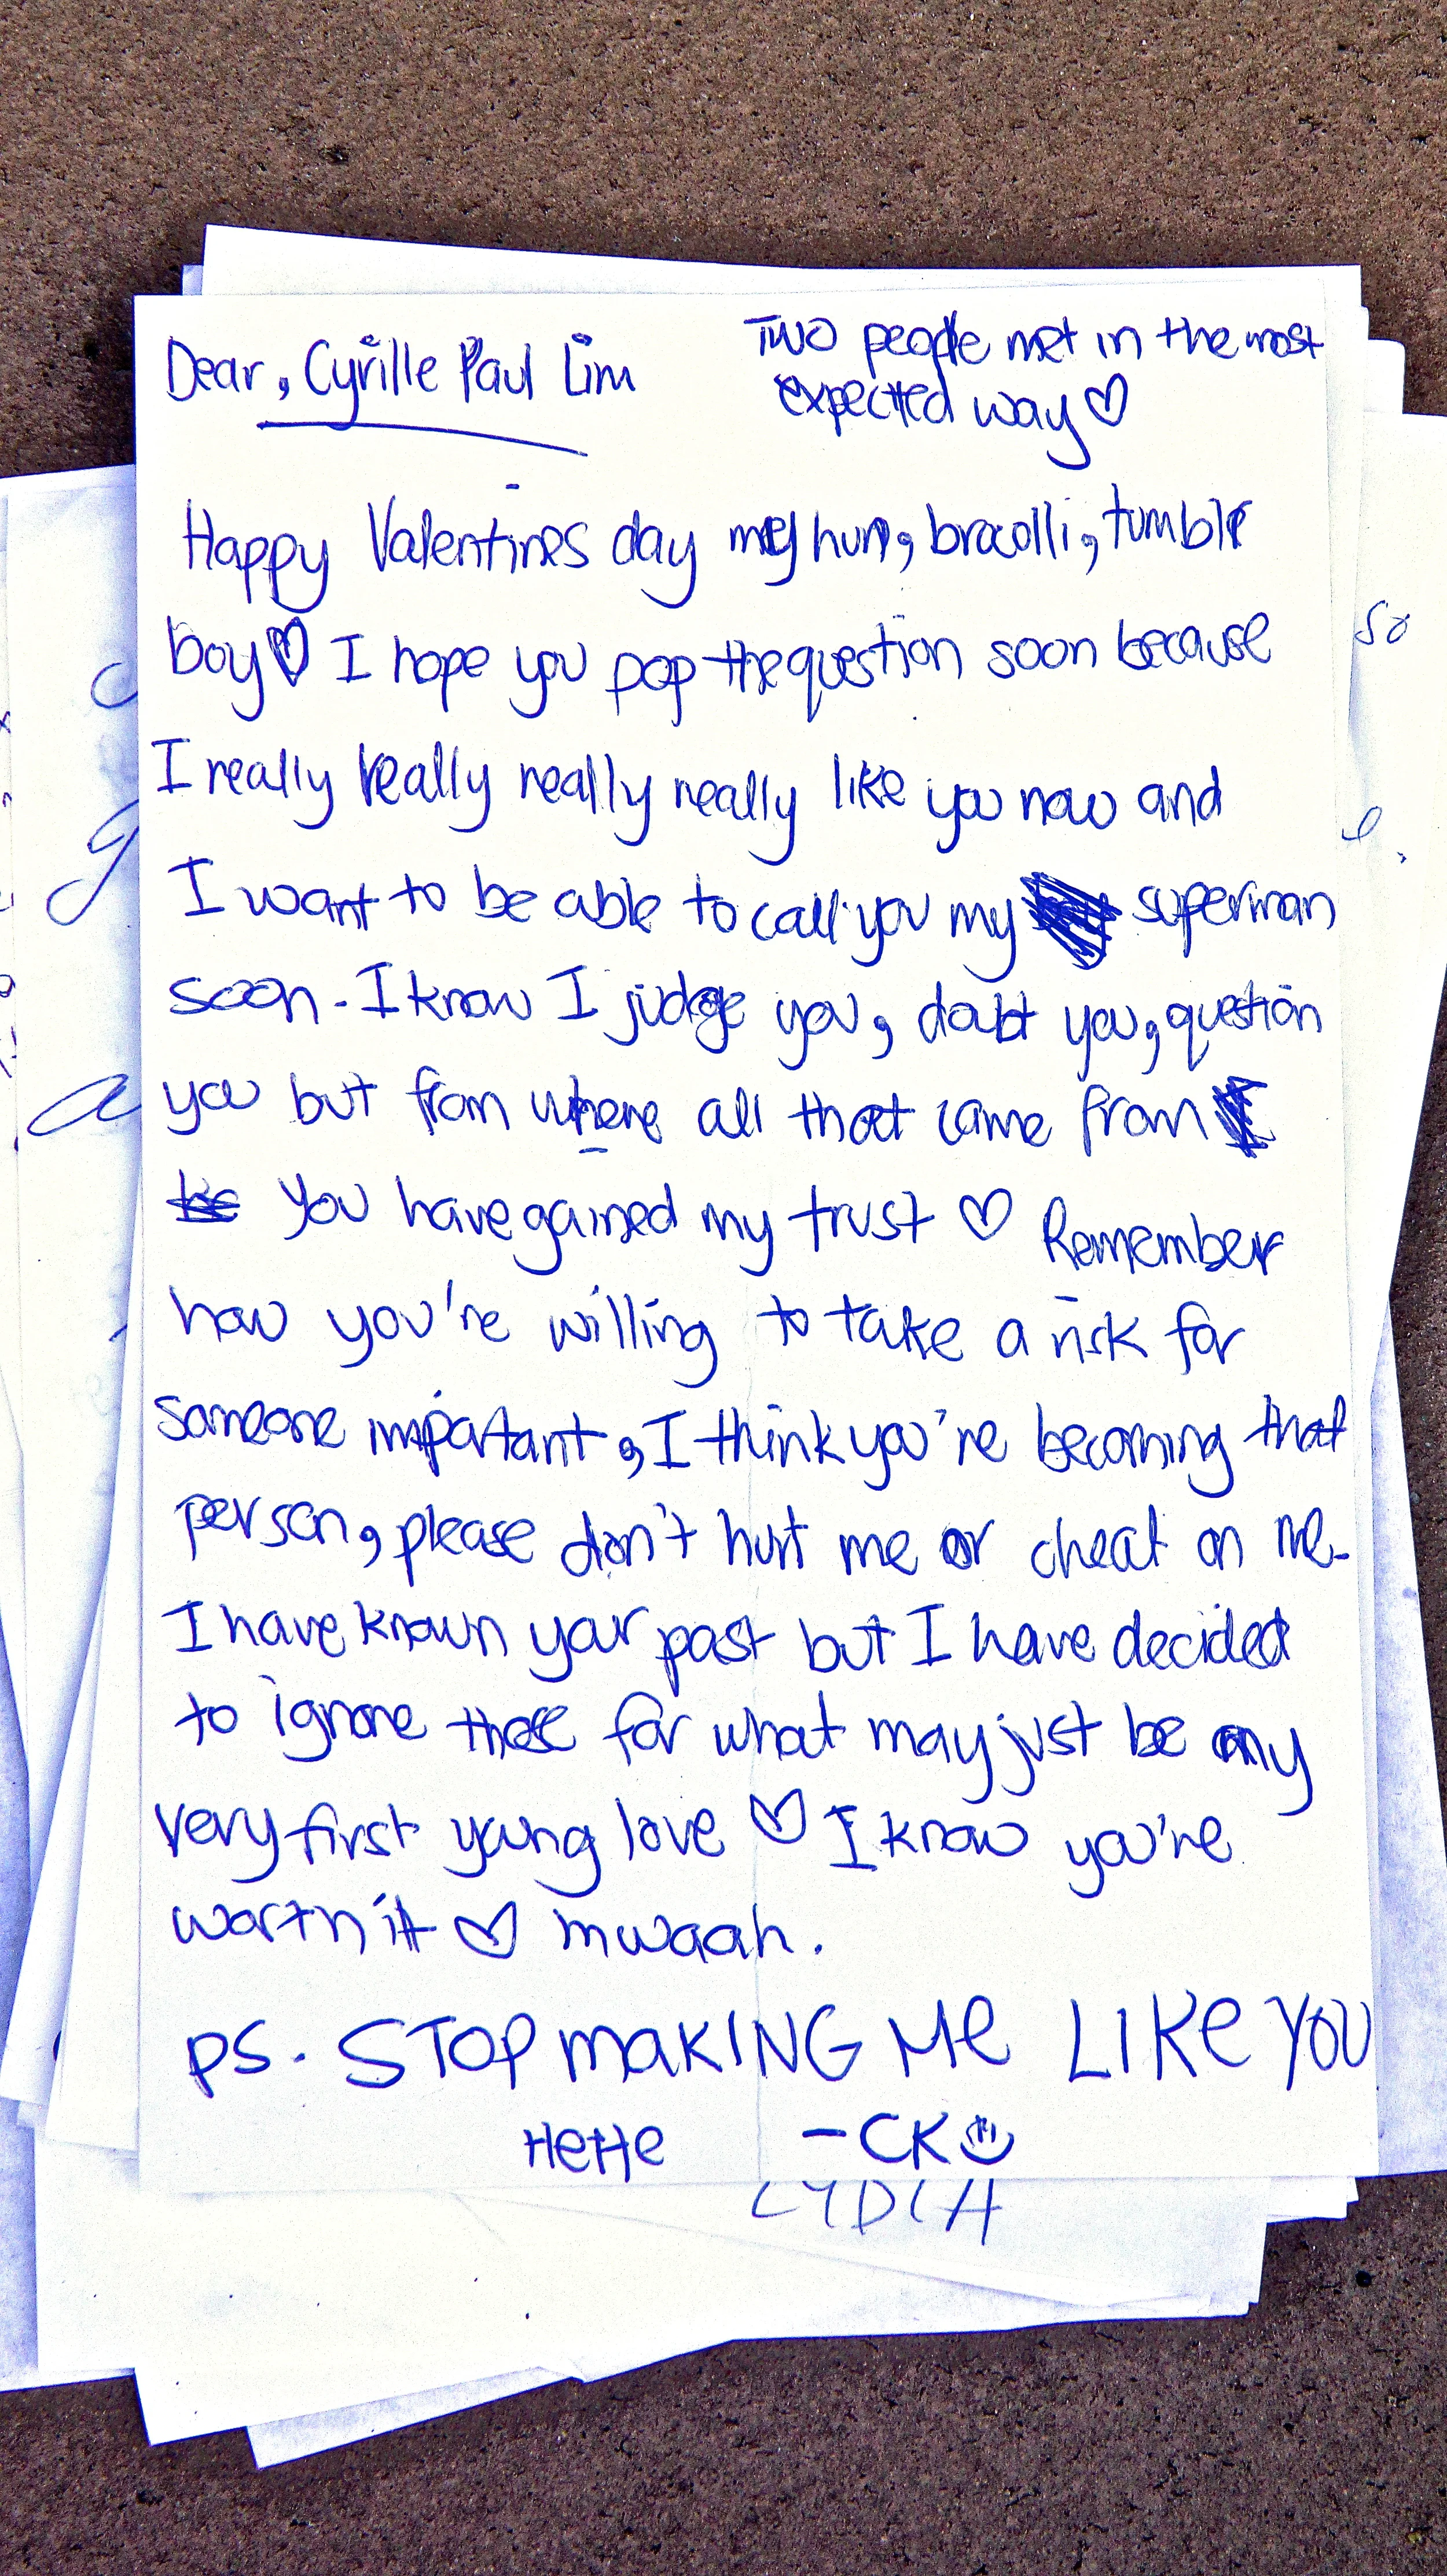 Dear, Cyrille Paul Lim
Two people met in the most
expected way ♡
Happy Valentines day my hun, bracolli, tumblr
boy ♡ I hope you pop the question soon because
I really really really really like you now and
I want to be able to call you my superman
soon. I know I judge you, doubt you, question
you but from where all that came from
You have gained my trust ♡ Remember
how you're willing to take a risk for
someone important, I think you're becoming that
person, please don't hurt me or cheat on me.
I have known your past but I have decided
to ignore those for what may just be my
very first young love ♡ I know you're
worth it ♡ mwaah.
PS. STOP MAKING ME LIKE YOU
HeHe -CK
LYDIA